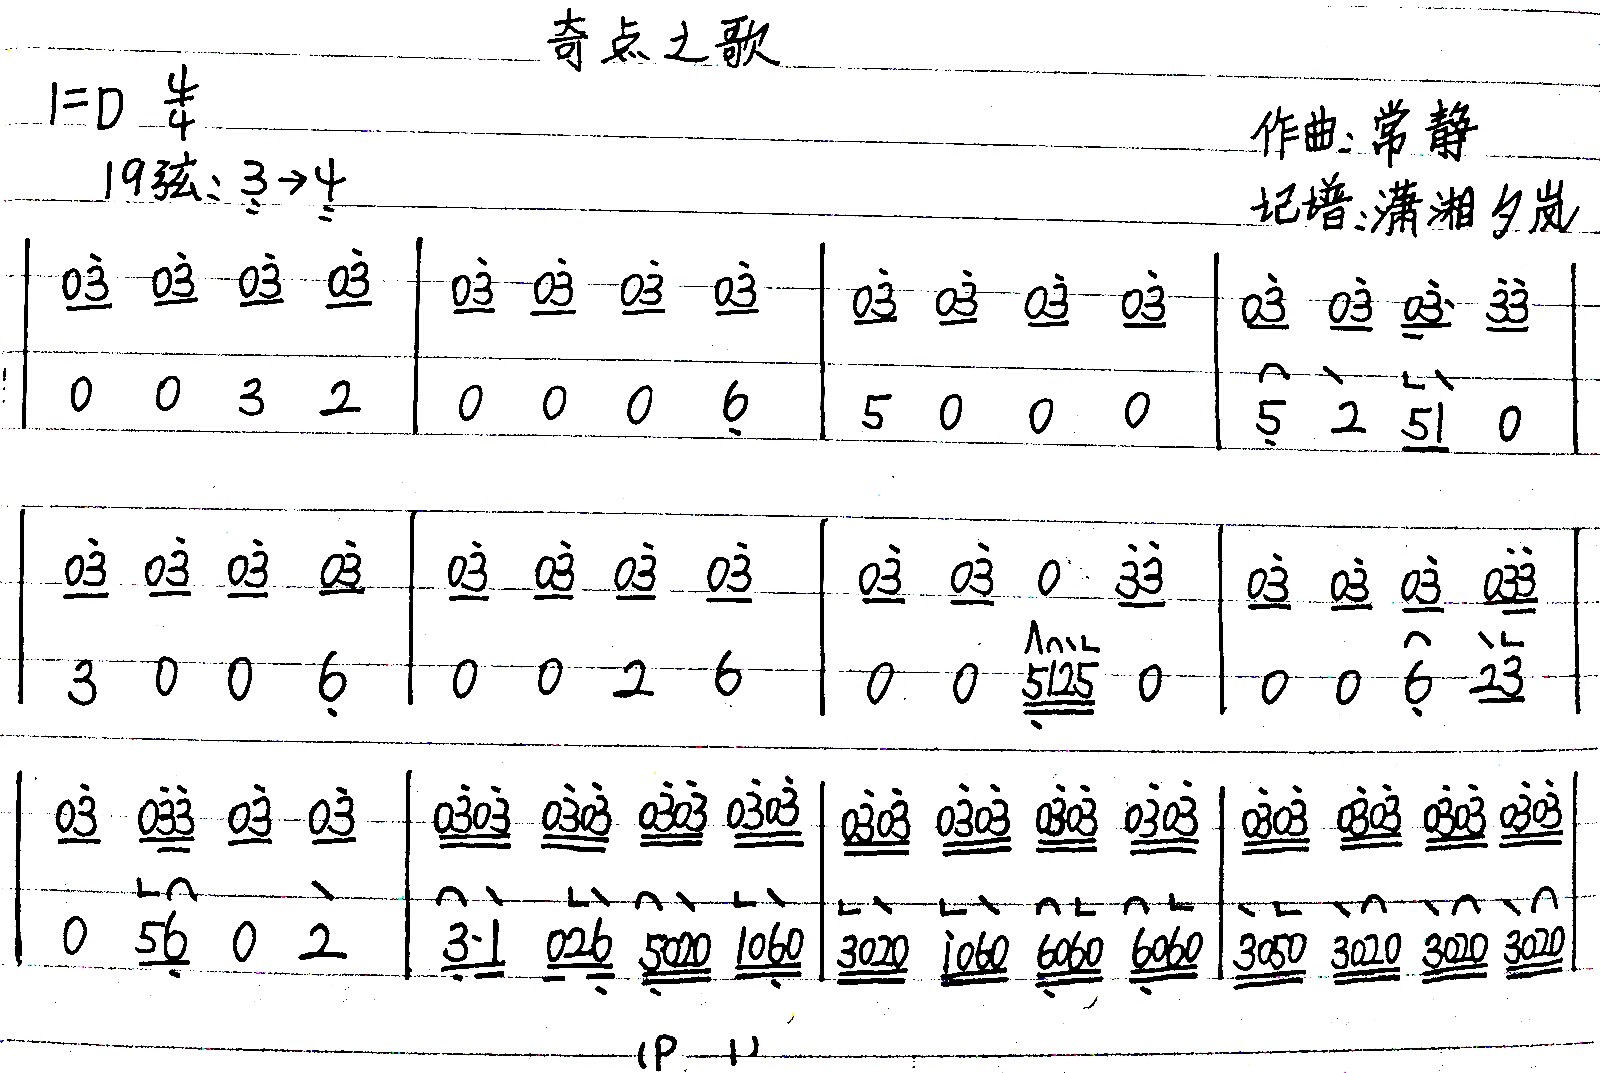 奇点之歌
1=D 4/4
作曲:常静
19弦:3→4
记谱:潇湘夕岚
03 03 03 03 | 03 03 03 03 | 03 03 03 03 | 03 03 03· 33
0 0 3 2 | 0 0 0 6 | 5 0 0 0 | 5 2 51 0
03 03 03 03 | 03 03 03 03 | 03 03 0 33 | 03 03 03 033
3 0 0 6 | 0 0 2 6 | 0 0 5125 0 | 0 0 6 23
03 033 03 03 | 0303 0303 0303 0303 | 0303 0303 0303 0303 | 0303 0303 0303 0303
0 56 0 2 | 3·1 026 5020 1060 | 3020 1060 6060 6060 | 3050 3020 3020 3020
(P-1)